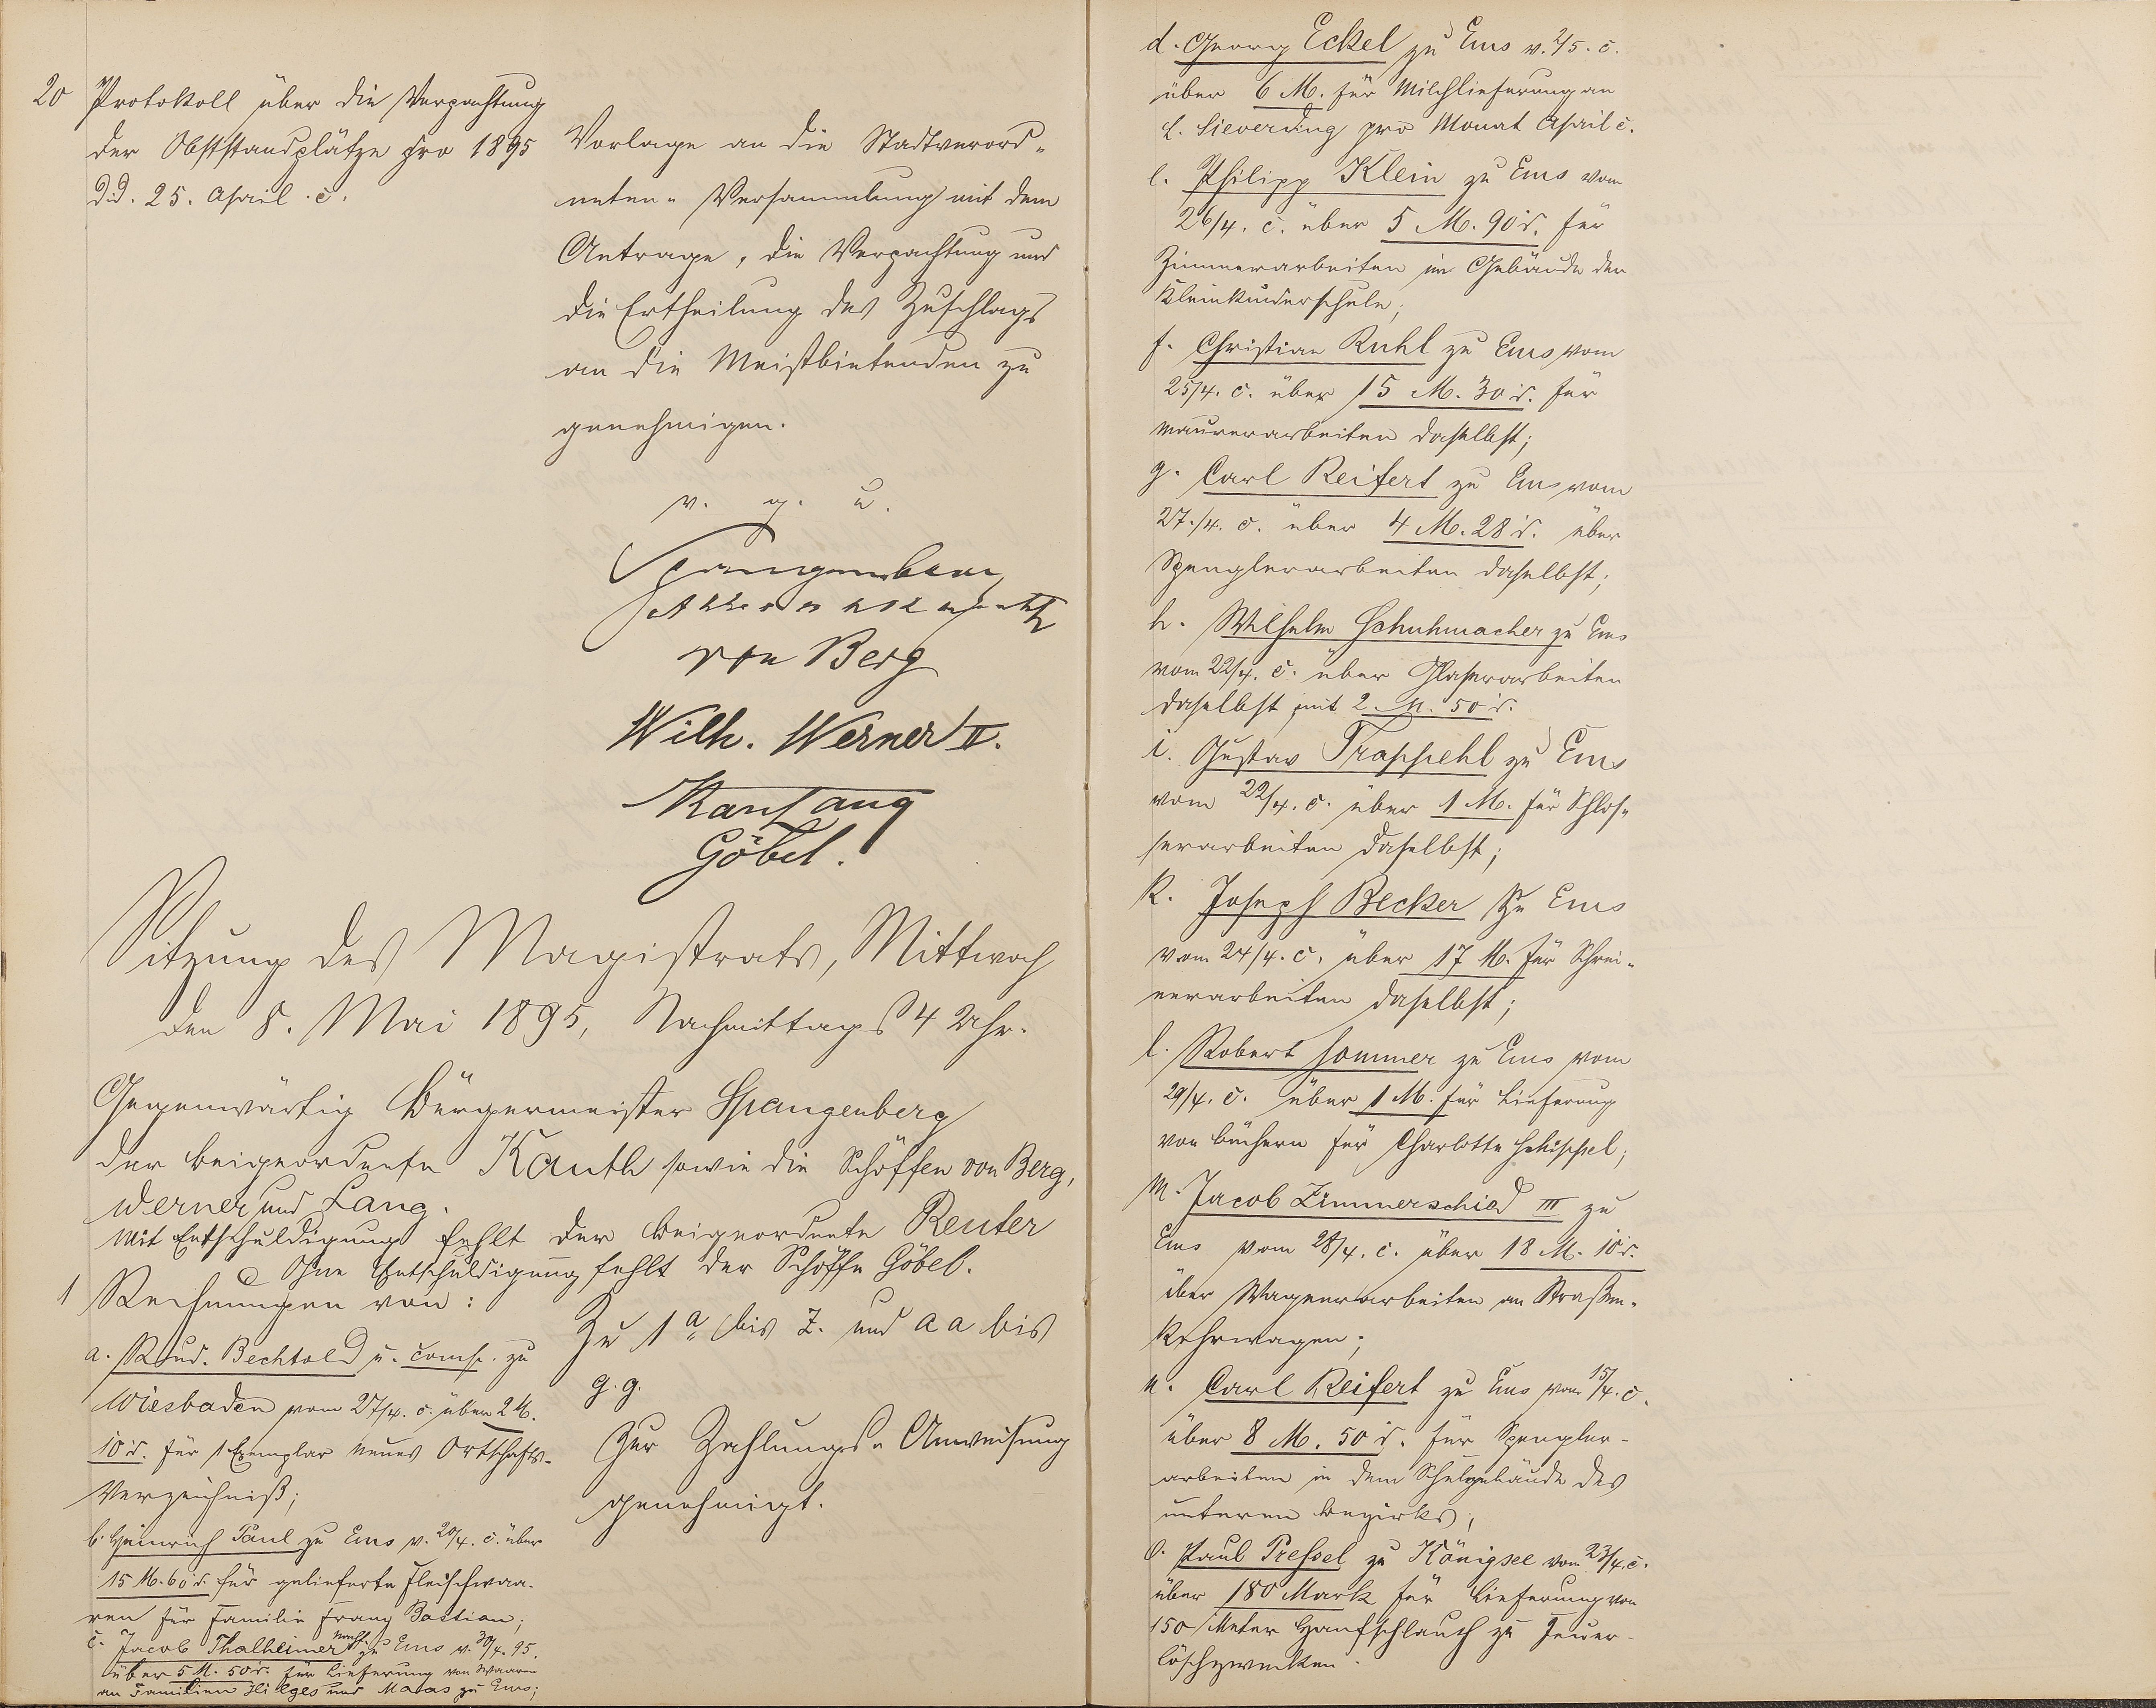 20 Protokoll über die Verpachtung
der Obststandplätze pro 1895
d.d. 25. April c.
Vorlage an die Stadtverord-
neten-Versammlung mit dem
Antrage, die Verpachtung und
die Ertheilung des Zuschlags
an die Meistbietenden zu
genehmigen.
v. g. u.
Spangenberg
von Berg
Wilh. Werner II.
Göbel.
Sitzung des Magistrats, Mittwoch
den 8. Mai 1895, Nachmittags 4 Uhr.
Gegenwärtig Bürgermeister Spangenberg
der Beigeordnete Kauth sowie die Schöffen von Berg,
Werner und Lang.
Mit Entschuldigung fehlt der Beigeordnete Reuter
Ohne Entschuldigung fehlt der Schöffe Göbel.
1 Rechnungen von:
a. Rud. Bechtold u. Comp. zu
Wiesbaden vom 27/4. c. über 2 M.
10 d. für 1 Exemplar neues Ortschafts-
Verzeichniß;
b. Heinrich Paul zu Ems v. 20/4. c. über
15 M. 60 d. für gelieferte Fleischwaa-
ren für Familie Franz Bastian;
c. Jacob Thalheimer Nachf. zu Ems v. 30/4. 95.
über 5 M. 50 d. für Lieferung von Waaren
an Familien Hilges und Maas zu Ems;
Zu 1 a bis z. und aa bis
g.g.
Zur Zahlungs-Anweisung
genehmigt.
d. Georg Eckel zu Ems v. 2/5. c.
über 6 M. für Milchlieferung an
L. Sieverding pro Monat April c.
e. Philipp Klein zu Ems vom
26/4. c. über 5 M. 90 d. für
Zimmerarbeiten im Gebäude der
Kleinkinderschule;
f. Christian Ruhl zu Ems vom
25/4. c. über 15 M. 30 d. für
Maurerarbeiten daselbst;
g. Carl Reifert zu Ems vom
27./4. c. über 4 M. 28 d. über
Spenglerarbeiten daselbst;
h. Wilhelm Schuhmacher zu Ems
vom 22/4. c. über Glaserarbeiten
daselbst mit 2 M. 50 d.
i. Gustav Trappehl zu Ems
vom 22/4. c. über 1 M. für Schlos-
serarbeiten daselbst;
k. Joseph Becker zu Ems
vom 24/4. c. über 17 M. für Schrei-
nerarbeiten daselbst;
l. Robert Sommer zu Ems vom
29/4. c. über 1 M. für Lieferung
von Büchern für Charlotte
m. Jacob Zimmerschied III zu
Ems vom 28/4. c. über 18 M. 10 d.
über Wagnerarbeiten an Straßen-
kehrwagen;
n. Carl Reifert zu Ems vom 15/4. c.
über 8 M. 50 d. für Spengler-
arbeiten in dem Schulgebäude des
unteren Bezirks;
o. Paul Pressel zu Königsee vom 23/4. c.
über 180 Mark für Lieferung von
150 Meter Hanfschlauch zu Feuer-
löschzwecken.